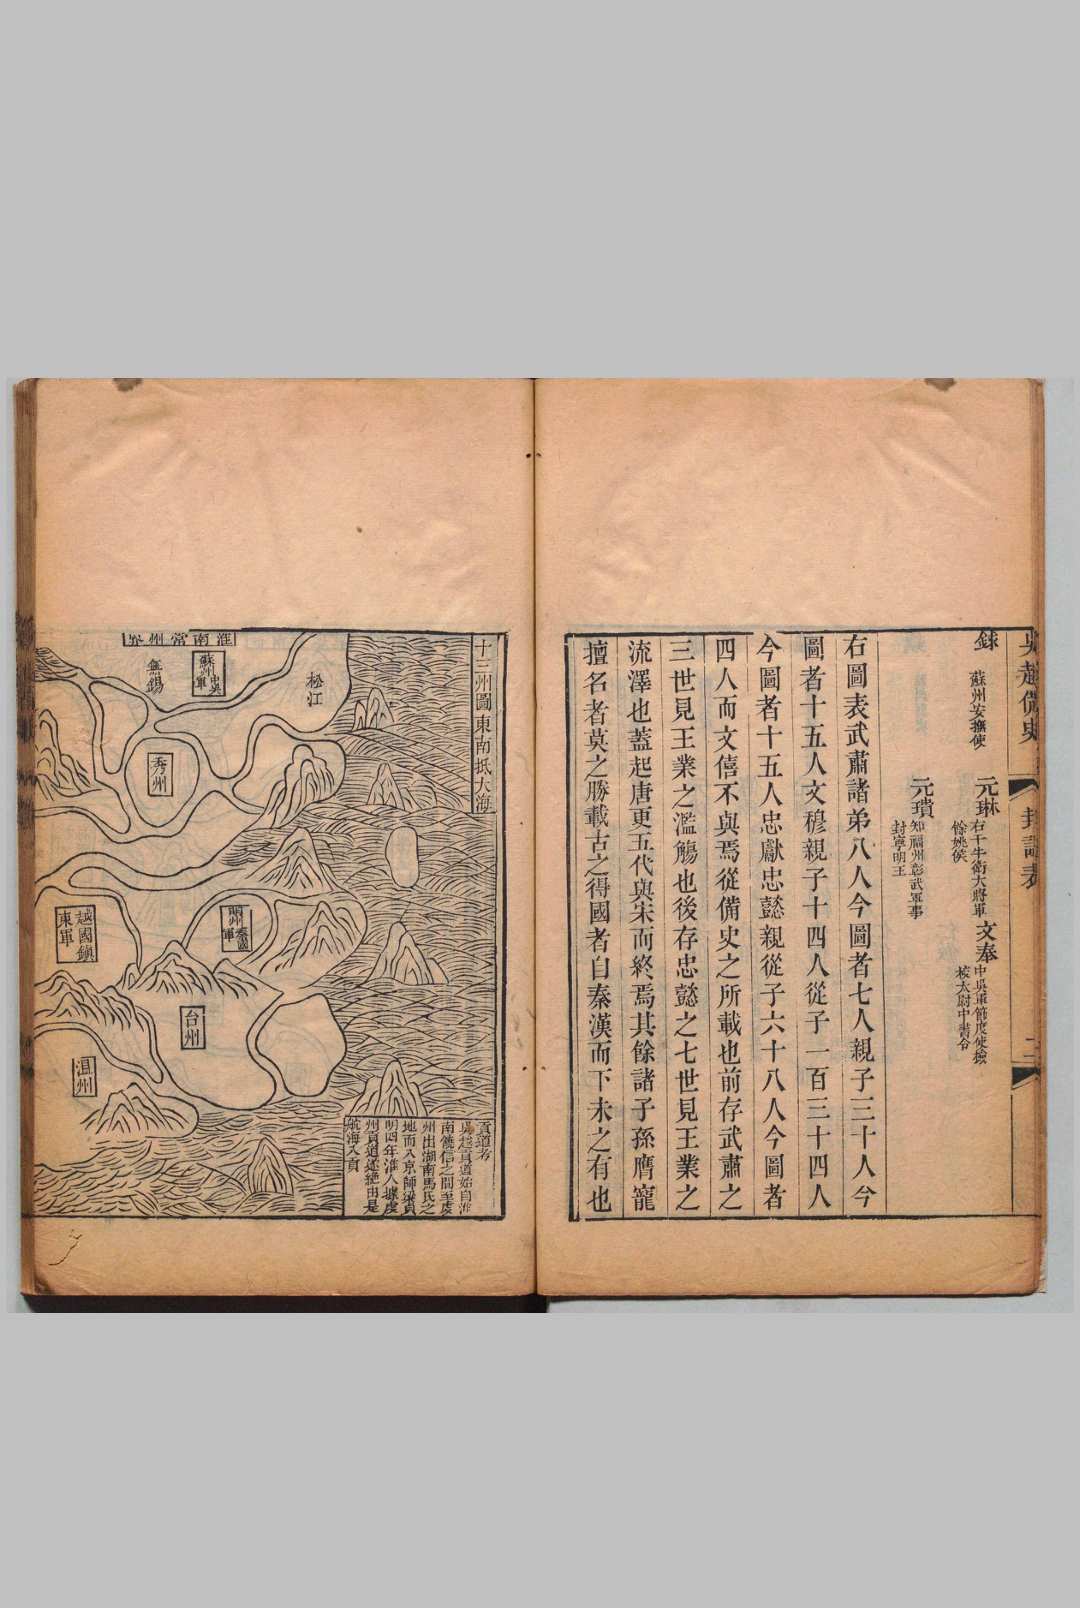 吳越備史
封諡表
二
錄
蘇州安撫使
元琳
右千牛衛大將軍
餘姚侯
文奉
中吳軍節度使撿
挍太尉中書令
元璝
知福州彰武軍事
封寧明王
右圖表武肅諸弟八人今圖者七人親子三十人今
圖者十五人文穆親子十四人從子一百三十四人
今圖者十五人忠獻忠懿親從子六十八人今圖者
四人而文僖不與焉從備史之所載也前存武肅之
三世見王業之濫觴也後存忠懿之七世見王業之
流澤也蓋起唐更五代與宋而終焉其餘諸子孫膺寵
擅名者莫之勝載古之得國者自秦漢而下未之有也
十三州圖
東南抵大海
松江
蘇州中吳軍
淮南常州界
無錫
秀州
明州奉國軍
越國鎮
東軍
台州
温州
貢道考
吳越貢道始自淮
南饒信之間至虔
州出湖南馬氏之
地而入京師梁貞
明四年淮人據虔
州貢道遂絕由是
航海入貢